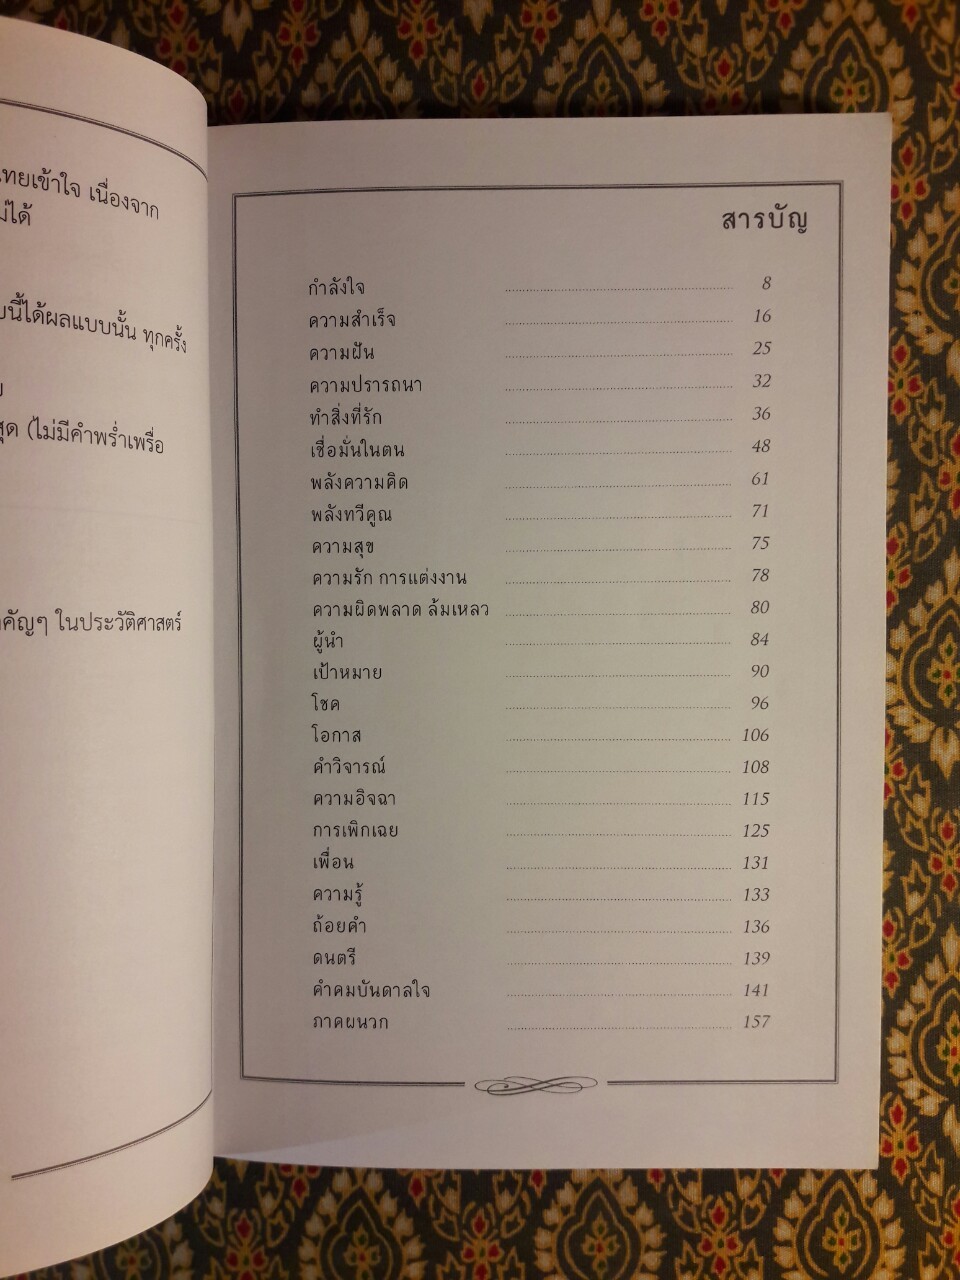 ทยเข้าใจ เนื่องจาก
ม่ได้
บนี้ได้ผลแบบนั้น ทุกครั้ง
สุด (ไม่มีคำพร่ำเพรื่อ
คัญๆ ในประวัติศาสตร์
สารบัญ
กำลังใจ 8
ความสำเร็จ 16
ความฝัน 25
ความปรารถนา 32
ทำสิ่งที่รัก 36
เชื่อมั่นในตน 48
พลังความคิด 61
พลังทวีคูณ 71
ความสุข 75
ความรัก การแต่งงาน 78
ความผิดพลาด ล้มเหลว 80
ผู้นำ 84
เป้าหมาย 90
โชค 96
โอกาส 106
คำวิจารณ์ 108
ความอิจฉา 115
การเพิกเฉย 125
เพื่อน 131
ความรู้ 133
ถ้อยคำ 136
ดนตรี 139
คำคมบันดาลใจ 141
ภาคผนวก 157